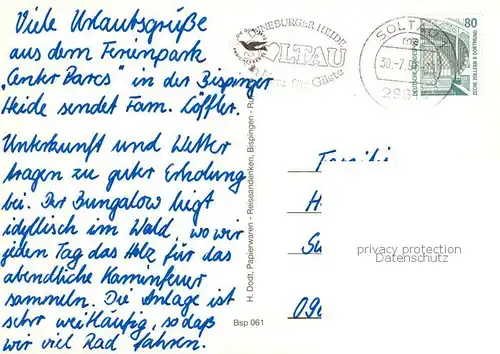 Viele Urlaubsgrüße
aus dem Ferienpark
„Center Parcs" in der Bispinger
Heide sendet Fam. Löffler.
Unterkunft und Wetter
tragen zu guter Erholung
bei. Der Bungalow liegt
idyllisch im Wald, wo wir
jeden Tag das Holz für das
abendliche Kaminfeuer
sammeln. Die Anlage ist
sehr weitläufig, so daß
wir viel Rad fahren.
LÜNEBURGER HEIDE
SOLTAU
für Gäste
SOLTAU
30.-7.9
290
80
DEUTSCHE BUNDESPOST
ZECHE ZOLLERN II DORTMUND
H. Dodt, Papierwaren - Reiseandenken, Bispingen - Ru
Bsp 061
privacy protection
Datenschutz